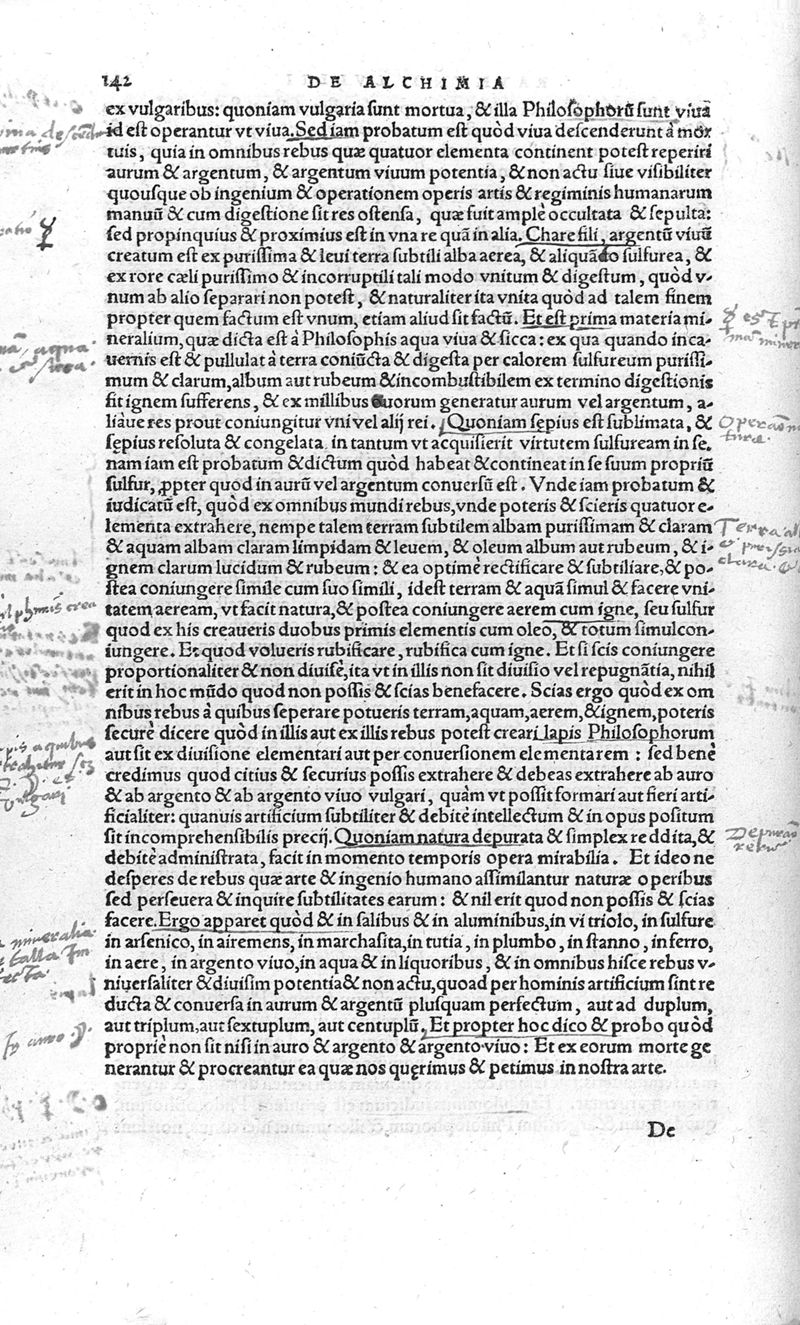 142 DE ALCHIMIA
ex vulgaribus: quoniam vulgaria sunt mortua, & illa Philosophorũ sunt viua
id est operantur vt viua. Sed iam probatum est quòd viua descenderunt à mor
tuis, quia in omnibus rebus quæ quatuor elementa continent potest reperiri
aurum & argentum, & argentum viuum potentia, & non actu siue visibiliter
quousque ob ingenium & operationem operis artis & regiminis humanarum
manuũ & cum digestione sit res ostensa, quæ fuit amplè occultata & sepulta:
sed propinquius & proximius est in vna re quã in alia. Chare fili, argentũ viuũ
creatum est ex purissima & leui terra subtili alba aerea, & aliquãdo sulfurea, &
ex rore cæli purissimo & incorruptili tali modo vnitum & digestum, quòd v-
num ab alio separari non potest, & naturaliter ita vnita quòd ad talem finem
propter quem factum est vnum, etiam aliud sit factũ. Et est prima materia mi-
neralium, quæ dicta est à Philosophis aqua viua & sicca: ex qua quando inca-
uernis est & pullulat à terra coniũcta & digesta per calorem sulfureum purissi-
mum & clarum, album aut rubeum & incombustibilem ex termino digestionis
fit ignem sufferens, & ex millibus quorum generatur aurum vel argentum, a-
liàue res prout coniungitur vni vel alij rei. Quoniam sępius est sublimata, &
sępius resoluta & congelata in tantum vt acquisierit virtutem sulfuream in se.
nam iam est probatum & dictum quòd habeat & contineat in se suum propriũ
sulfur, ꝓpter quod in aurũ vel argentum conuersũ est. Vnde iam probatum &
iudicatũ est, quòd ex omnibus mundi rebus, vnde poteris & scieris quatuor e-
lementa extrahere, nempe talem terram subtilem albam purissimam & claram
& aquam albam claram limpidam & leuem, & oleum album aut rubeum, & i-
gnem clarum lucidum & rubeum: & ea optimè rectificare & subtiliare, & po-
stea coniungere simile cum suo simili, idest terram & aquã simul & facere vni-
tatem aeream, vt facit natura, & postea coniungere aerem cum igne, seu sulfur
quod ex his creaueris duobus primis elementis cum oleo, & totum simul con-
iungere. Et quod volueris rubificare, rubifica cum igne. Et si scis coniungere
proportionaliter & non diuisè, ita vt in illis non sit diuisio vel repugnãtia, nihil
erit in hoc mũdo quod non possis & scias benefacere. Scias ergo quòd ex om
nibus rebus à quibus seperare potueris terram, aquam, aerem, & ignem, poteris
securè dicere quòd in illis aut ex illis rebus potest creari lapis Philosophorum
aut sit ex diuisione elementari aut per conuersionem elementarem : sed benè
credimus quod citius & securius possis extrahere & debeas extrahere ab auro
& ab argento & ab argento viuo vulgari, quàm vt possit formari aut fieri arti-
ficialiter: quanuis artificium subtiliter & debitè intellectum & in opus positum
sit incomprehensibilis precij. Quoniam natura depurata & simplex reddita, &
debitè administrata, facit in momento temporis opera mirabilia. Et ideo ne
desperes de rebus quæ arte & ingenio humano assimilantur naturæ operibus
sed perseuera & inquire subtilitates earum: & nil erit quod non possis & scias
facere. Ergo apparet quòd & in salibus & in aluminibus, in vitriolo, in sulfure
in arsenico, in airemens, in marchasita, in tutia, in plumbo, in stanno, in ferro,
in aere, in argento viuo, in aqua & in liquoribus, & in omnibus hisce rebus v-
niuersaliter & diuisim potentia & non actu, quoad per hominis artificium sint re
ducta & conuersa in aurum & argentũ plusquam perfectum, aut ad duplum,
aut triplum, aut sextuplum, aut centuplũ. Et propter hoc dico & probo quòd
propriè non sit nisi in auro & argento & argento viuo: Et ex eorum morte ge
nerantur & procreantur ea quæ nos quęrimus & petimus in nostra arte.
De